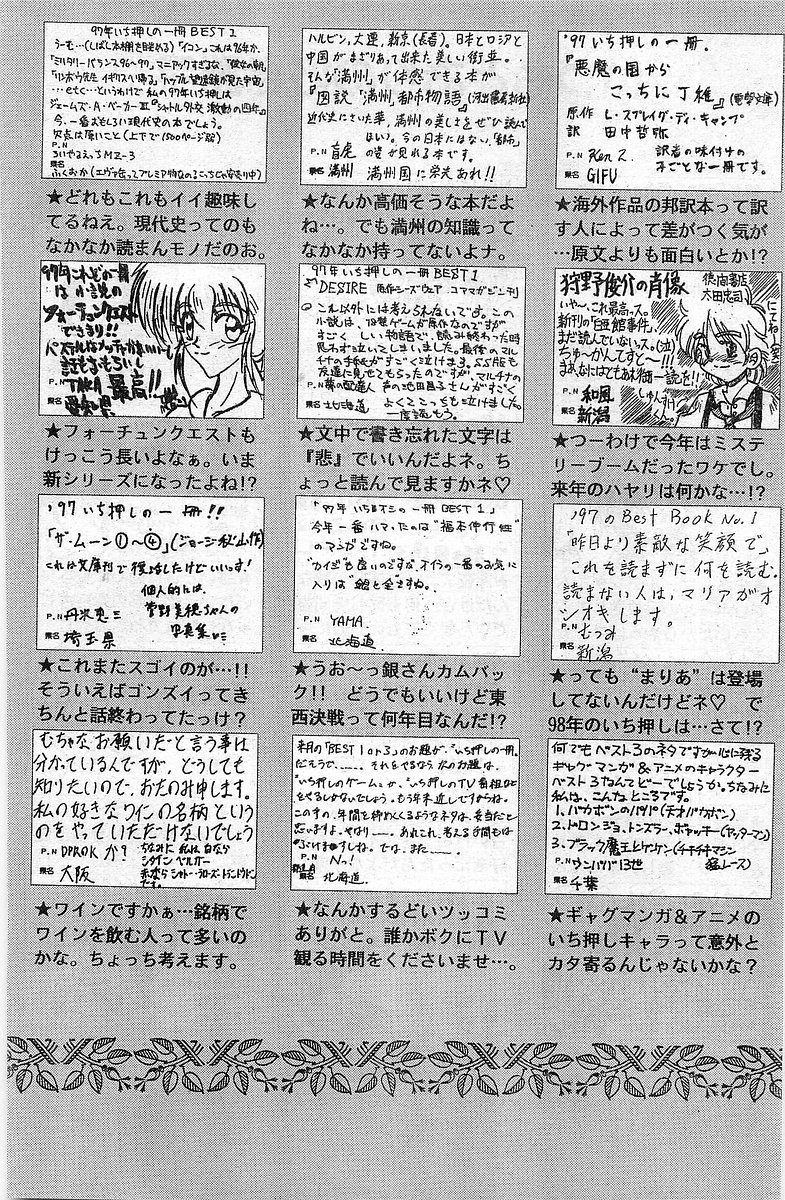 97年いち押しの一冊 BEST1
うーむ…(しばし本棚を眺める)「イコン」これは96年か、
「ミリタリーバランス96〜97」マニアックすぎるな、
…etc…というわけで私の97年いち押しは
ジェームズ・A・ベーカーⅢ『シャトル外交 激動の四年』
今、一番おもしろい現代史の本でしょう。
欠点は厚いこと(上下で1500ページ弱)
P.N
ちいやるえっちMZ-3
県名
ふくおか
★どれもこれもイイ趣味し
てるねえ。現代史ってのも
なかなか読まんモノだのお。
ハルビン,大連,新京(長春)。日本とロシアと
中国がまざりあって出来た美しい街並。
そんな「満州」が体感できる本が
『図説「満州」都市物語』(河出書房新社)
近代史にさいた華,満州の美しさをぜひ読んで
ほしい。今の日本にはない「都市」
の姿が見れる本です。
P.N 盲虎
県名 満州 満州国に栄えあれ!!
★なんか高価そうな本だよ
ね…。でも満州の知識って
なかなか持ってないよナ。
'97いち押しの一冊.
『悪魔の国から
こっちに丁稚』(電撃文庫)
原作 L・スプレイグ・ディ・キャンプ
訳 田中哲弥
P.N Ken Z. 訳者の味付けの
みごとな一冊です。
県名 GIFU
★海外作品の邦訳本って訳
す人によって差がつく気が
…原文よりも面白いとか!?
97年これぞの一冊
は小説の
フォーチュンクエスト
できまり!!
話もおもろいし
最高!!
P.N TAKA
県名 愛知県
★フォーチュンクエストも
けっこう長いよなぁ。いま
新シリーズになったよね!?
97年いち押しの一冊 BEST1
DESIRE 原作シーズウェア コアマガジン刊
これ以外には考えられないです。この
小説は、18禁ゲームが原作なのですが
すごく しい物語で、読み終わった時
思わず泣いてしまいました。最後のマル
チナの手紙がすごく泣けます。SS版も
友達に見せてもらったのですが、マルチナの
声の池田昌子さんがすごく
よくてこっちも泣けました。
一度読もう。
P.N 夢の配達人
県名 北海道
★文中で書き忘れた文字は
『悲』でいいんだよネ。ち
ょっと読んで見ますかネ♡
狩野俊介の肖像 徳間書店
太田忠司
いや〜これ最高っス。
新刊の「白亜館事件」、
まだ読んでいないス。(泣)
ちゅーかんてすと〜!!!
まぁなにはともあれ御一読を!!
にてね〜(笑)
しゅんすけ
P.N 和風
県名 新潟
★つーわけで今年はミステ
リーブームだったワケでし。
来年のハヤリは何かな…!?
'97いち押しの一冊!!
「ザ・ムーン①〜④」(ジョージ秋山作)
これは文庫刊で復活したけどいいっす!
個人的には、
菅野美穂ちゃんの
写真集…
P.N 丹沢恵三
県名 埼玉県
★これまたスゴイのが…!!
そういえばゴンズイってき
ちんと話終わってたっけ?
「'97年いちオシの一冊 BEST1」
今年一番ハマったのは"福本伸行"
のマンガですね。
"カイジ"も良いのですが、オイラの一番のお気に
入りは"銀と金"ですね。
P.N YAMA
県名 北海道
★うお〜っ銀さんカムバッ
ク!! どうでもいいけど東
西決戦って何年目なんだ!?
'97のBest Book No.1
「昨日より素敵な笑顔で」
これを読まずに何を読む。
読まない人は,マリアがオ
シオキします。
P.N むつみ
県名 新潟
★っても"まりあ"は登場
してないんだけどネ♡ で
98年のいち押しは…さて!?
むちゃなお願いだと言う事は
分かっているんですが、どうしても
知りたいので、おたのみ申します。
私の好きなワインの名柄という
のをやっていただけないでしょう
か?
P.N DPROK
ちなみに私は白なら
シタインベルガー
赤ならシャトー・ラローズ・トラントドンに
です。
県名 大阪
★ワインですかぁ…銘柄で
ワインを飲む人って多いの
かな。ちょっち考えます。
来月の「BEST 1 or 3」のお題が、"いち押しの一冊"
だそうで、……それをやるなら次のお題は、
"いち押しのゲーム"とか、"いち押しのTV番組"など
をやるしかないでしょう。もう年末近しですからね。
この手の、年間を締めくくるようなネタは、妥当だと
思いますよ。やはり……。あれこれ、考える手間も
はぶけますしね。では、また……。
P.N Nっ!
県名 北海道.
★なんかするどいツッコミ
ありがと。誰かボクにTV
観る時間をくださいませ…。
何でもベスト3のネタですが心に残る
ギャグマンガ&アニメのキャラクター
ベスト3なんてどーでしょうか。ちなみに
私は、こんなところです。
1. バカボンのパパ(天才バカボン)
2. ドロンジョ,トンズラー,ボヤッキー(ヤッターマン)
3. ブラック魔王とケンケン(チキチキマシン
猛レース)
P.N ウンババ13世
県名 千葉
★ギャグマンガ&アニメの
いち押しキャラって意外と
カタ寄るんじゃないかな?